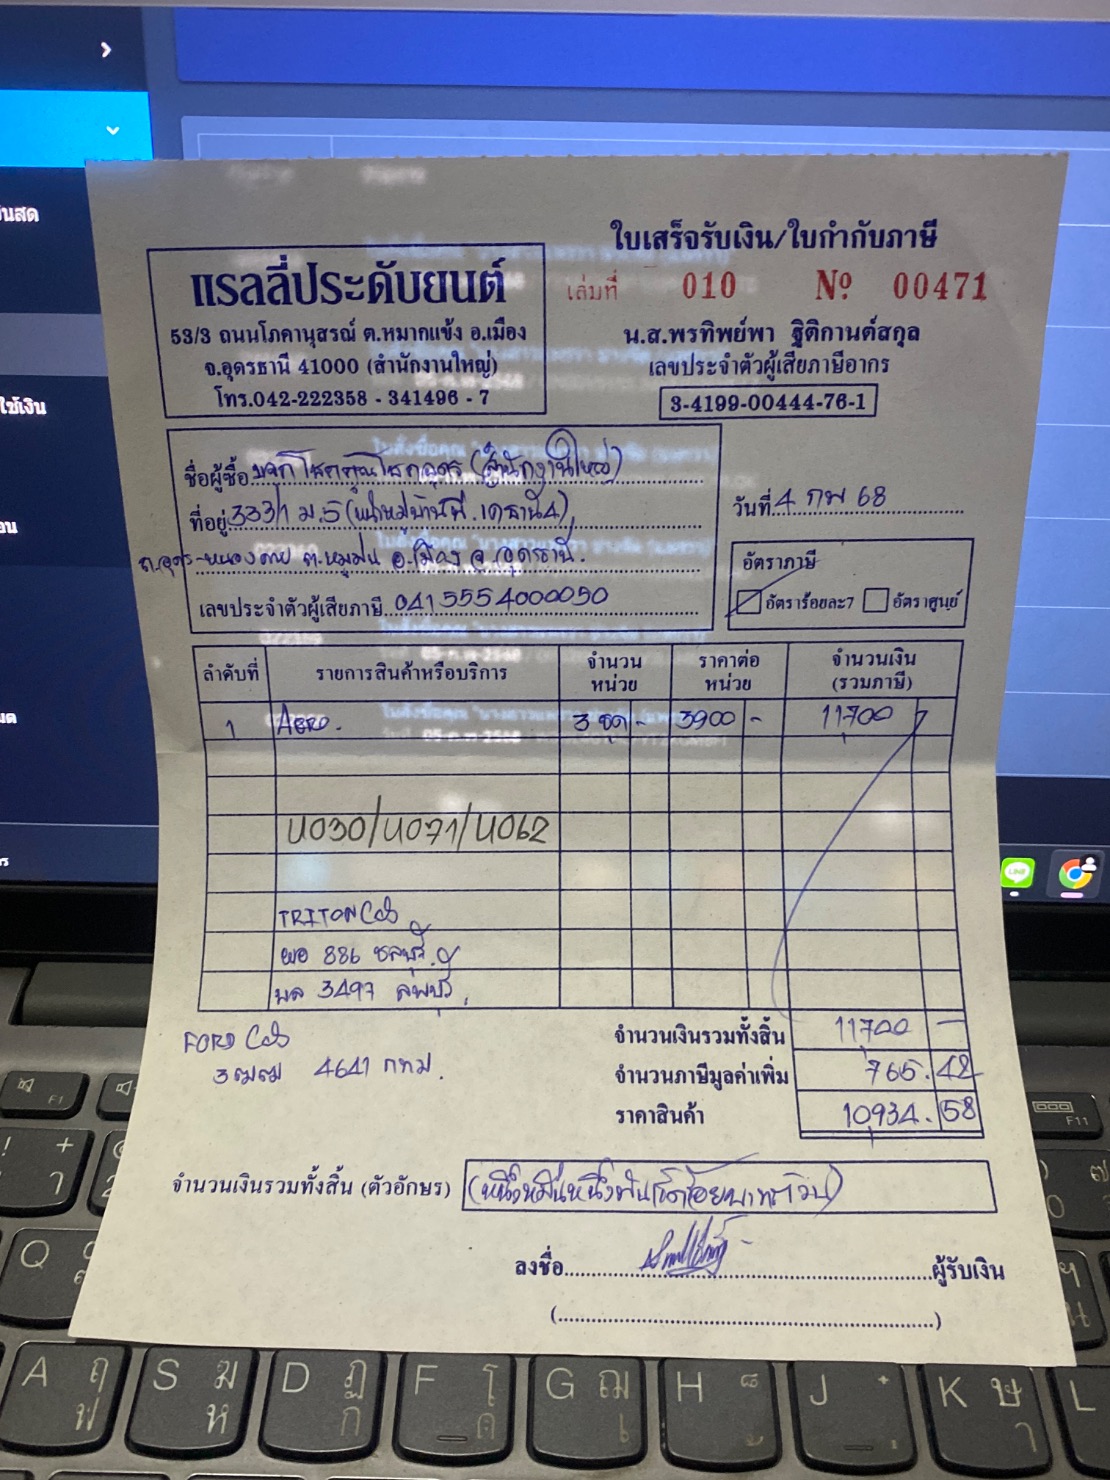 ใบเสร็จรับเงิน/ใบกำกับภาษี
แรลลี่ประดับยนต์
53/3 ถนนโภคานุสรณ์ ต.หมากแข้ง อ.เมือง
จ.อุดรธานี 41000 (สำนักงานใหญ่)
โทร.042-222358 - 341496 - 7
เล่มที่ 010 Nº 00471
น.ส.พรทิพย์พา ฐิติกานต์สกุล
เลขประจำตัวผู้เสียภาษีอากร
3-4199-00444-76-1
ชื่อผู้ซื้อ บจก โชคคูณโชคอุดร (สำนักงานใหญ่)
ที่อยู่ 333/1 ม.5
ถ.อุดร-หนองคาย ต.หมูม่น อ.เมือง จ.อุดรธานี.
เลขประจำตัวผู้เสียภาษี 0415554000050
วันที่ 4 กพ 68
อัตราภาษี
อัตราร้อยละ7 อัตราศูนย์
ลำดับที่ รายการสินค้าหรือบริการ จำนวนหน่วย ราคาต่อหน่วย จำนวนเงิน (รวมภาษี)
1 AERO. 3 ชุด - 3900 - 11,700
U030/U071/U062
TRITON Cab
886 ชลบุรี
3497 ลพบุรี
FORD Cab
3ฒฒ 4641 กทม.
จำนวนเงินรวมทั้งสิ้น 11,700 -
จำนวนภาษีมูลค่าเพิ่ม 765.42
ราคาสินค้า 10,934.58
จำนวนเงินรวมทั้งสิ้น (ตัวอักษร) (หนึ่งหมื่นหนึ่งพันเจ็ดร้อยบาทถ้วน)
ลงชื่อ ผู้รับเงิน
F1
F11
Q
A ฤ ฟ
S ฆ ห
D ฏ ก
F โ ค
G ฌ เ
H ็ ้
J ๋ ่
K ษ า
L